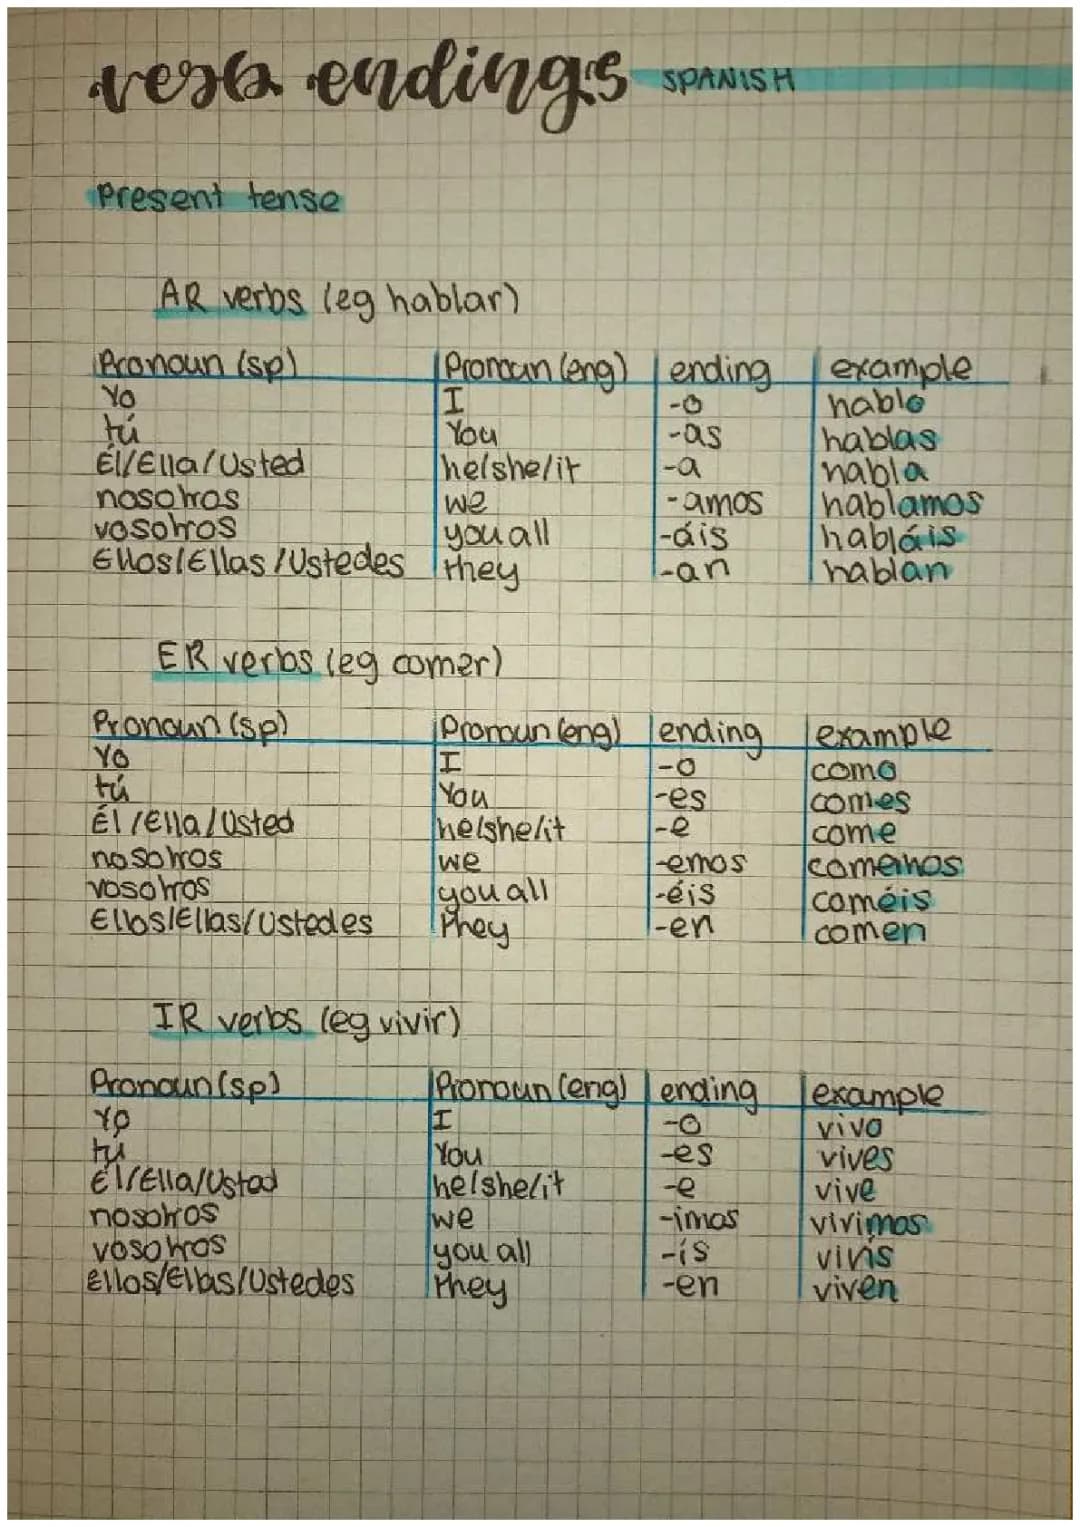 verb endings SPANISH
Present tense
AR verbs (eg hablar)
Pronoun (sp) Pronoun (eng) ending example
Yo I -o hablo
tú You -as hablas
Él/Ella/Usted he/she/it -a habla
nosotros we -amos hablamos
vosotros you all -áis habláis
Ellos/Ellas/Ustedes they -an hablan
ER verbs (eg comer)
Pronoun (sp) Pronoun (eng) ending example
Yo I -o como
tú You -es comes
Él/Ella/Usted he/she/it -e come
nosotros we -emos comemos
vosotros you all -éis coméis
Ellos/Ellas/Ustedes they -en comen
IR verbs (eg vivir)
Pronoun (sp) Pronoun (eng) ending example
Yo I -o vivo
tú You -es vives
Él/Ella/Usted he/she/it -e vive
nosotros we -imos vivimos
vosotros you all -ís vivís
Ellos/Ellas/Ustedes they -en viven